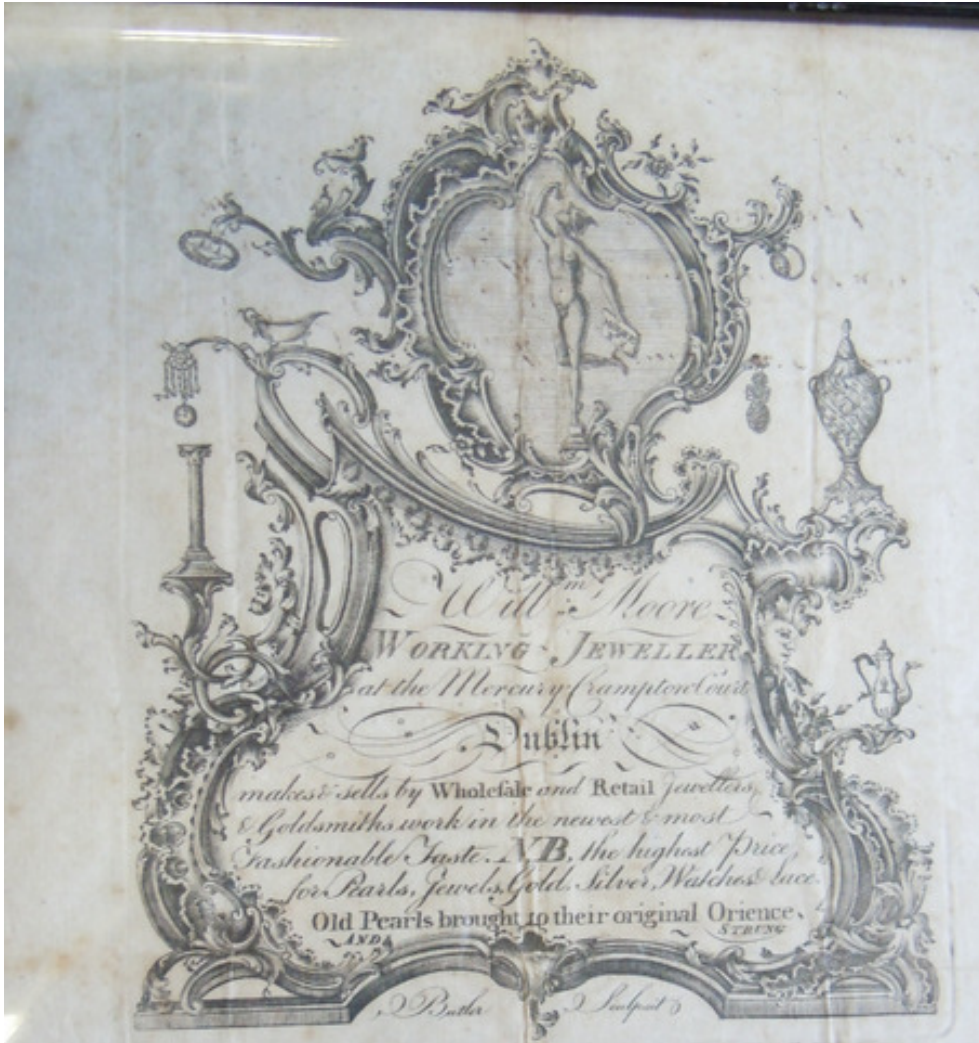 Will.m Moore
WORKING JEWELLER
at the Mercury Crampton Court
Dublin
makes & sells by Wholesale and Retail Jewellers
& Goldsmiths work in the newest & most
Fashionable Taste. NB. the highest Price
for Pearls, Jewels, Gold, Silver, Watches & Lace.
Old Pearls brought to their original Orience
AND STRUNG
Butler Sculpsit